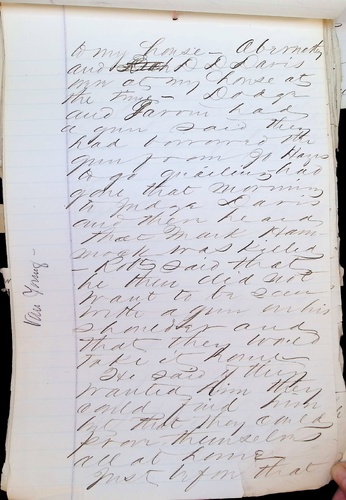 to my house - Abernathy
and D D Davis
run at my house at
the time - Dodge
and Jarom had
a gun said they
had borrowed the
gun from Jo Hays
to go quailing had
gone that morning
to Judge Davis
and then heard
that Mark Ham
mock was killed
- said that
he then did not
want to be seen
with a gun on his
shoulder and
that they would
take it home
He said if they
wanted him they
could find him
but that they could
prove themselves
all at home
Just before that
Van Young -